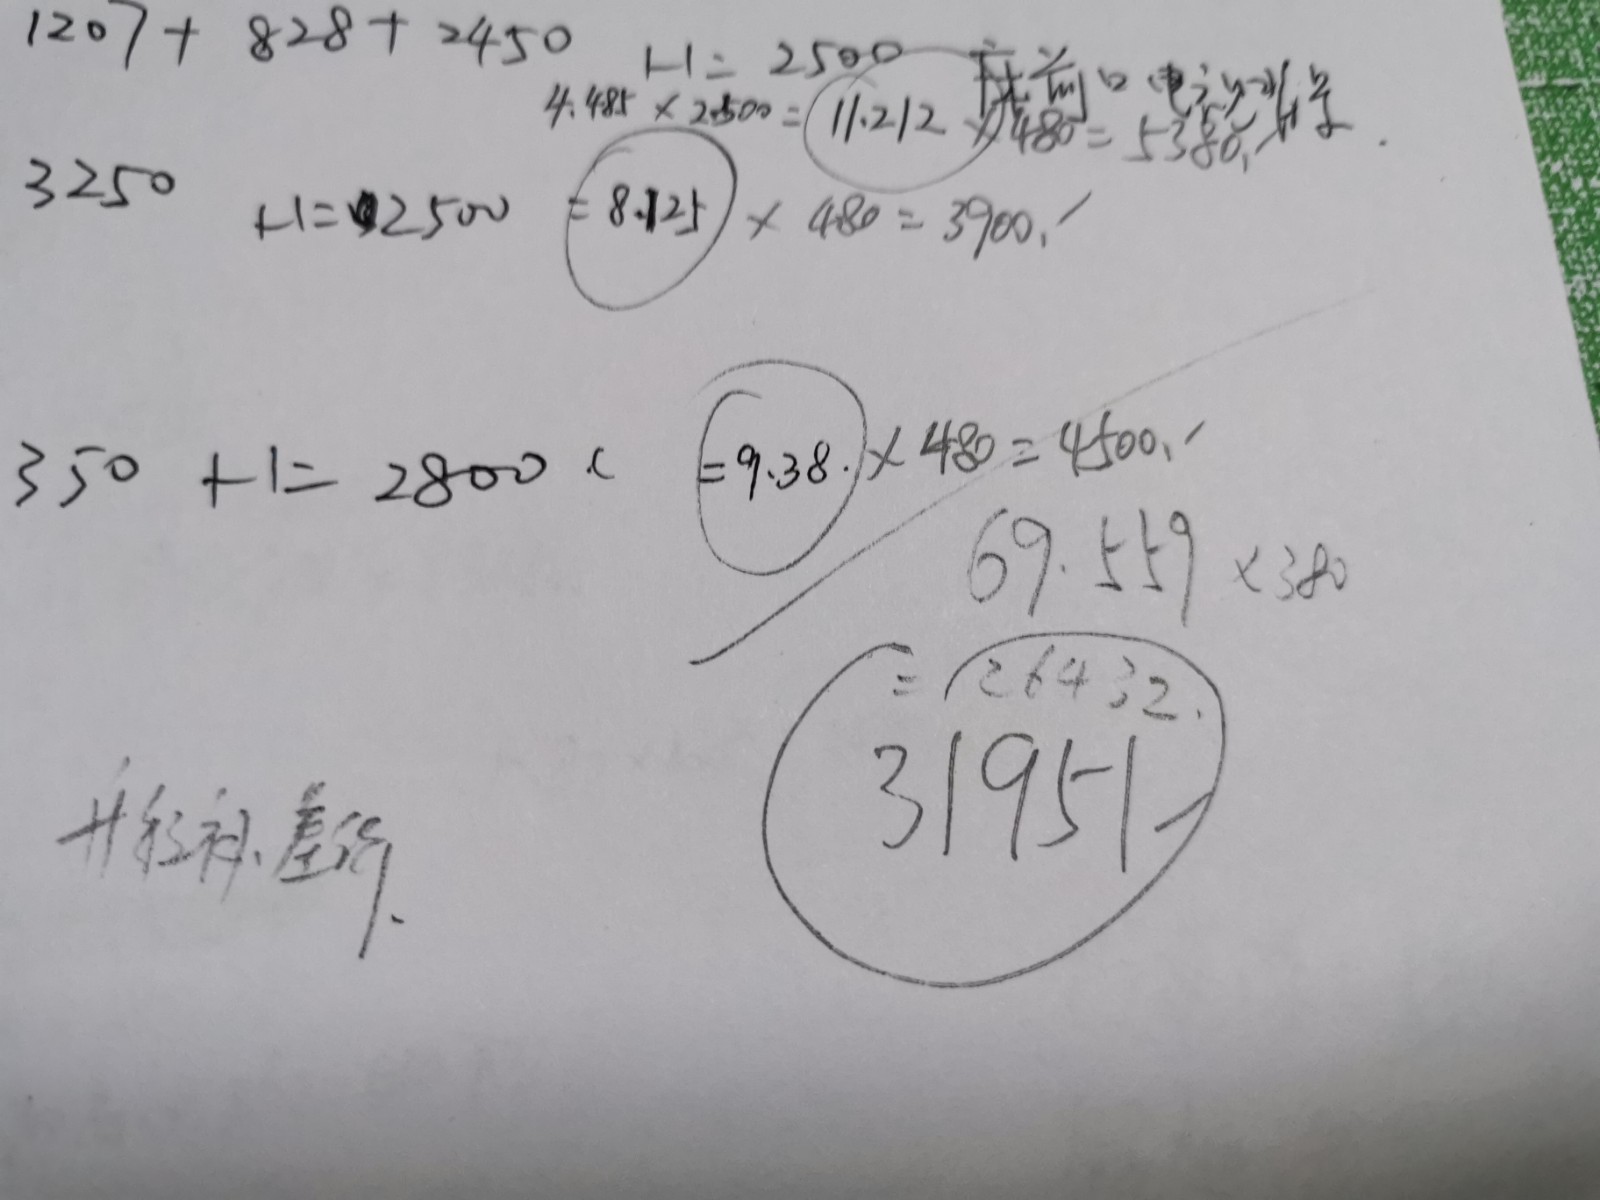 1207+ 828+ 2450 H= 2500
4.485 × 2.500 = 11.212 × 480 = 5380.
3250 H= 2500 = 8.125 × 480 = 3900.
350 H= 2800 = 9.38. × 480 = 4500.
69.559 ×380
= 26432.
31951
补差价.